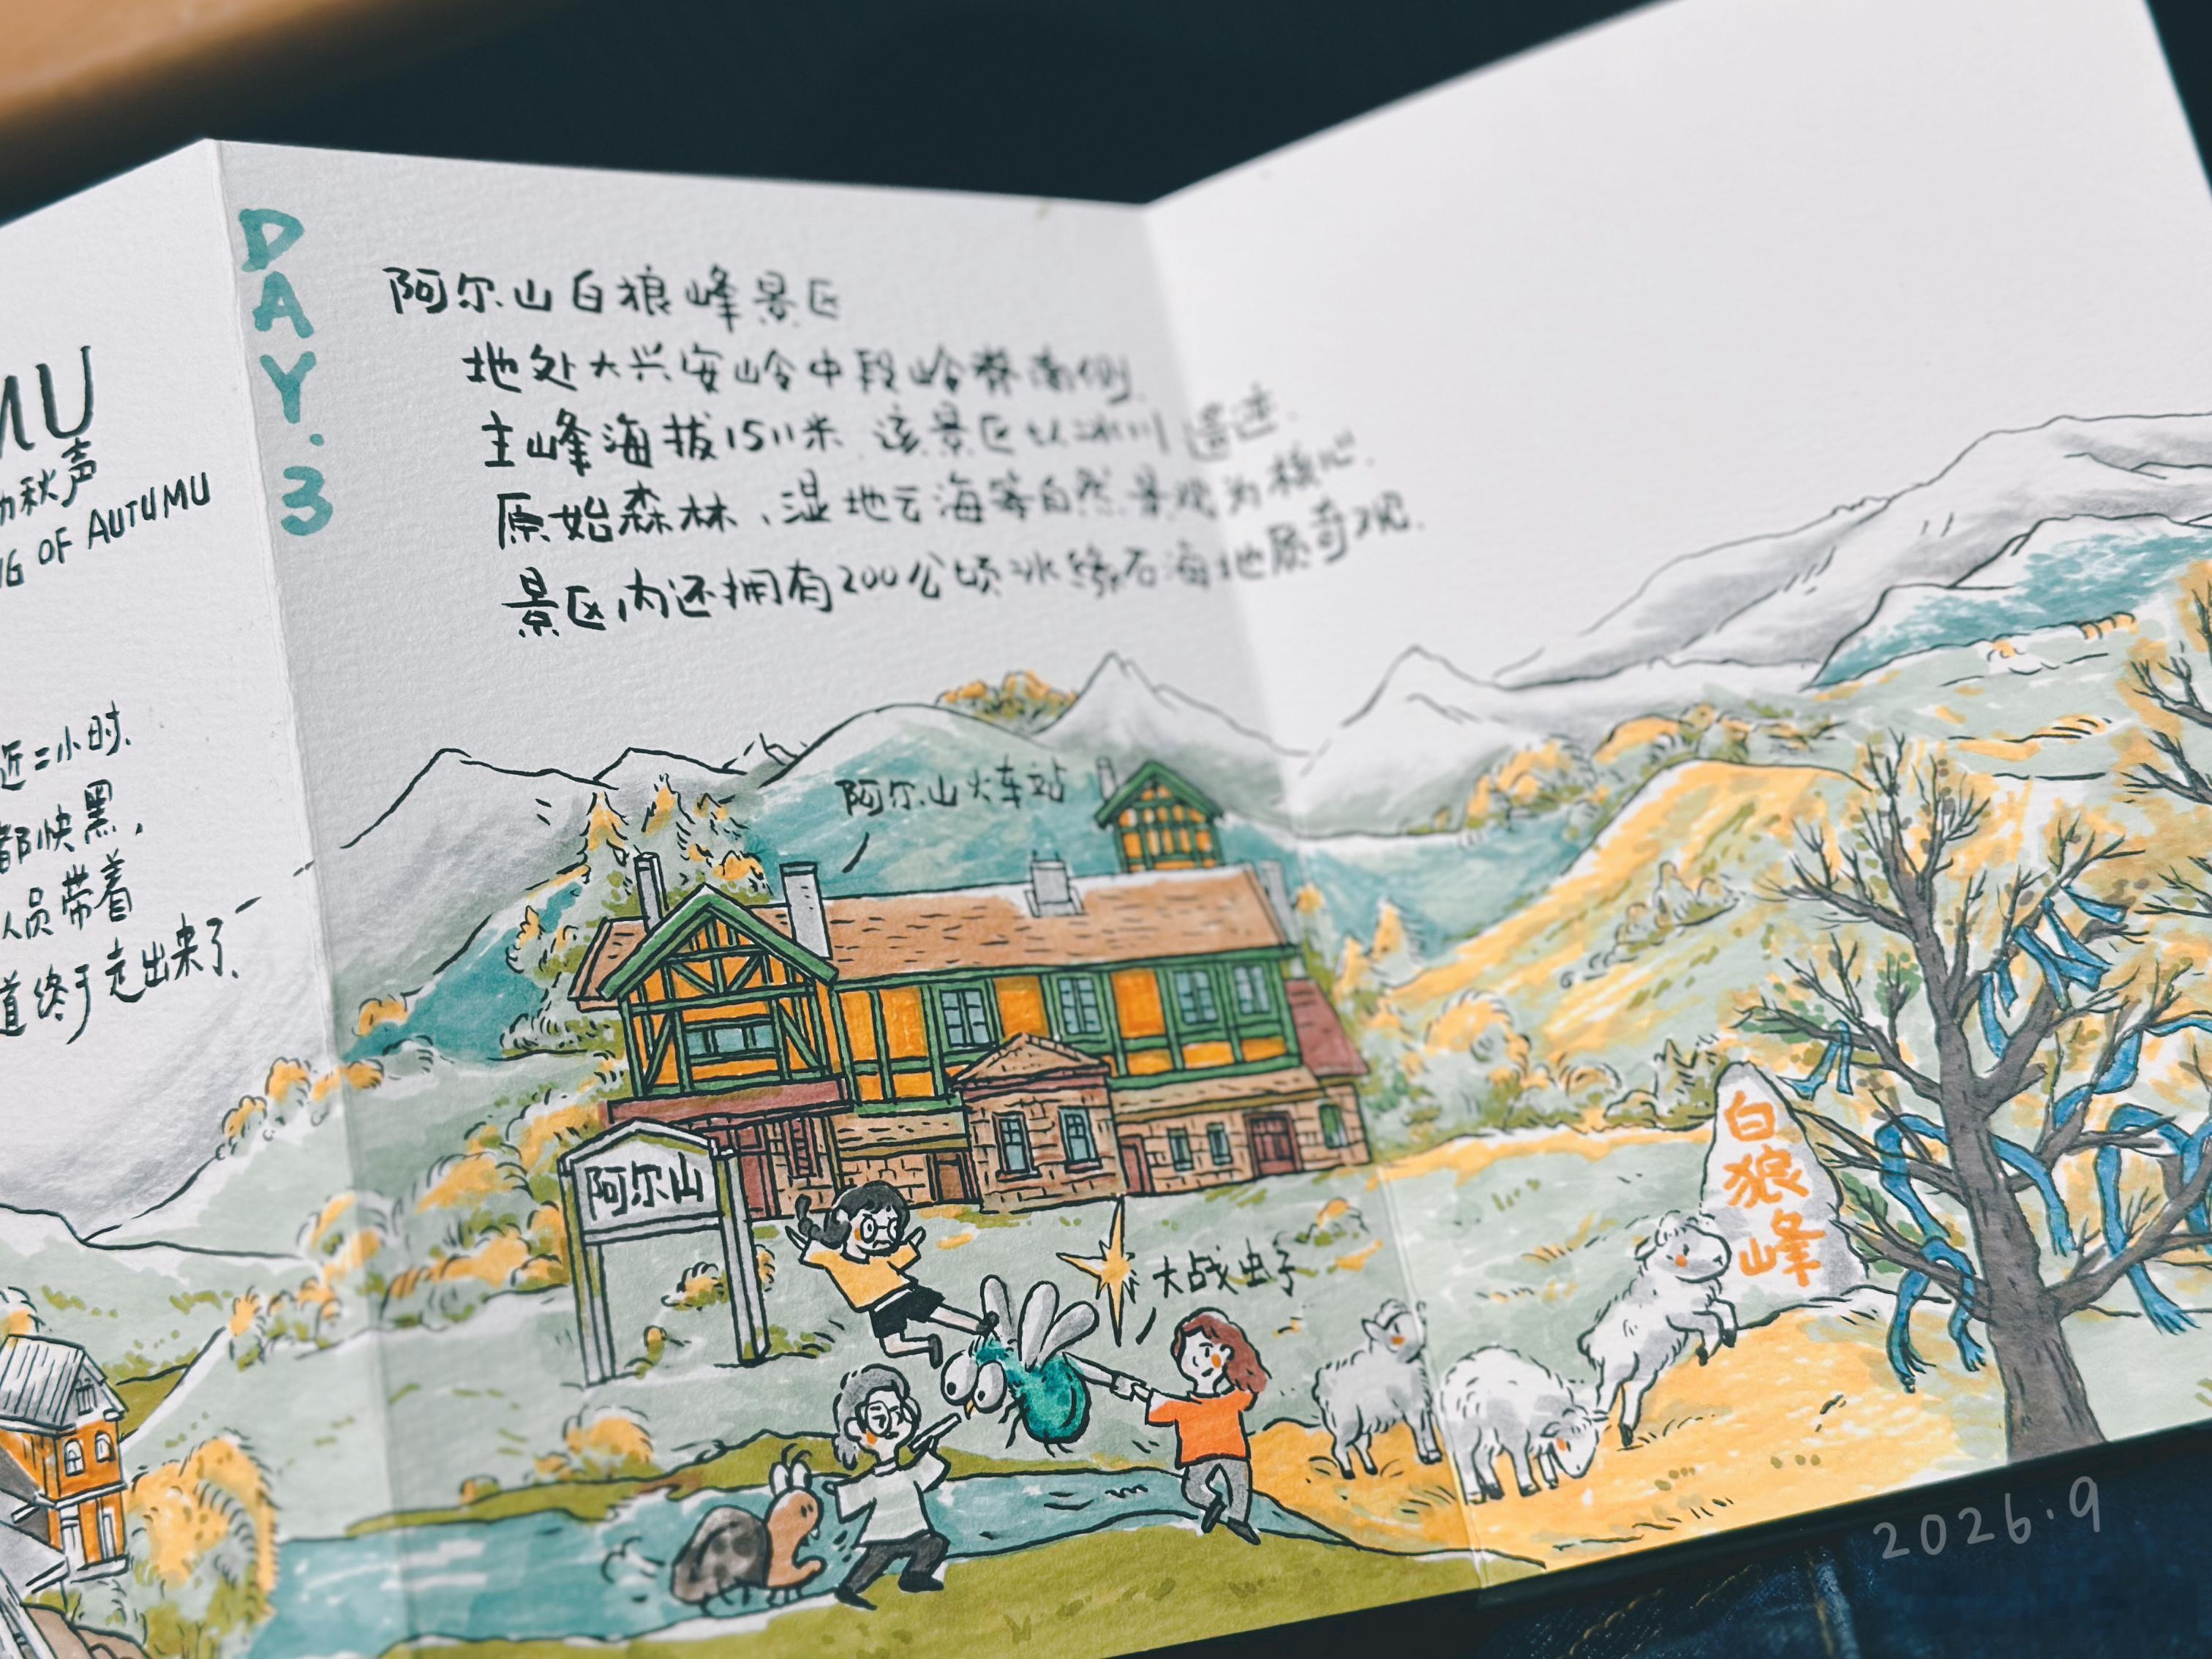 MU
秋声
NG OF AUTUMU
近二小时.
都快黑,
人员带着
道终于走出来了.
DAY.3
阿尔山白狼峰景区
地处大兴安岭中段岭脊南侧.
主峰海拔1511米.该景区以冰川遗迹.
原始森林、湿地云海等自然景观为核心.
景区内还拥有200公顷冰缘石海地质奇观.
阿尔山火车站
阿尔山
大战虫子
白狼峰
2026.9